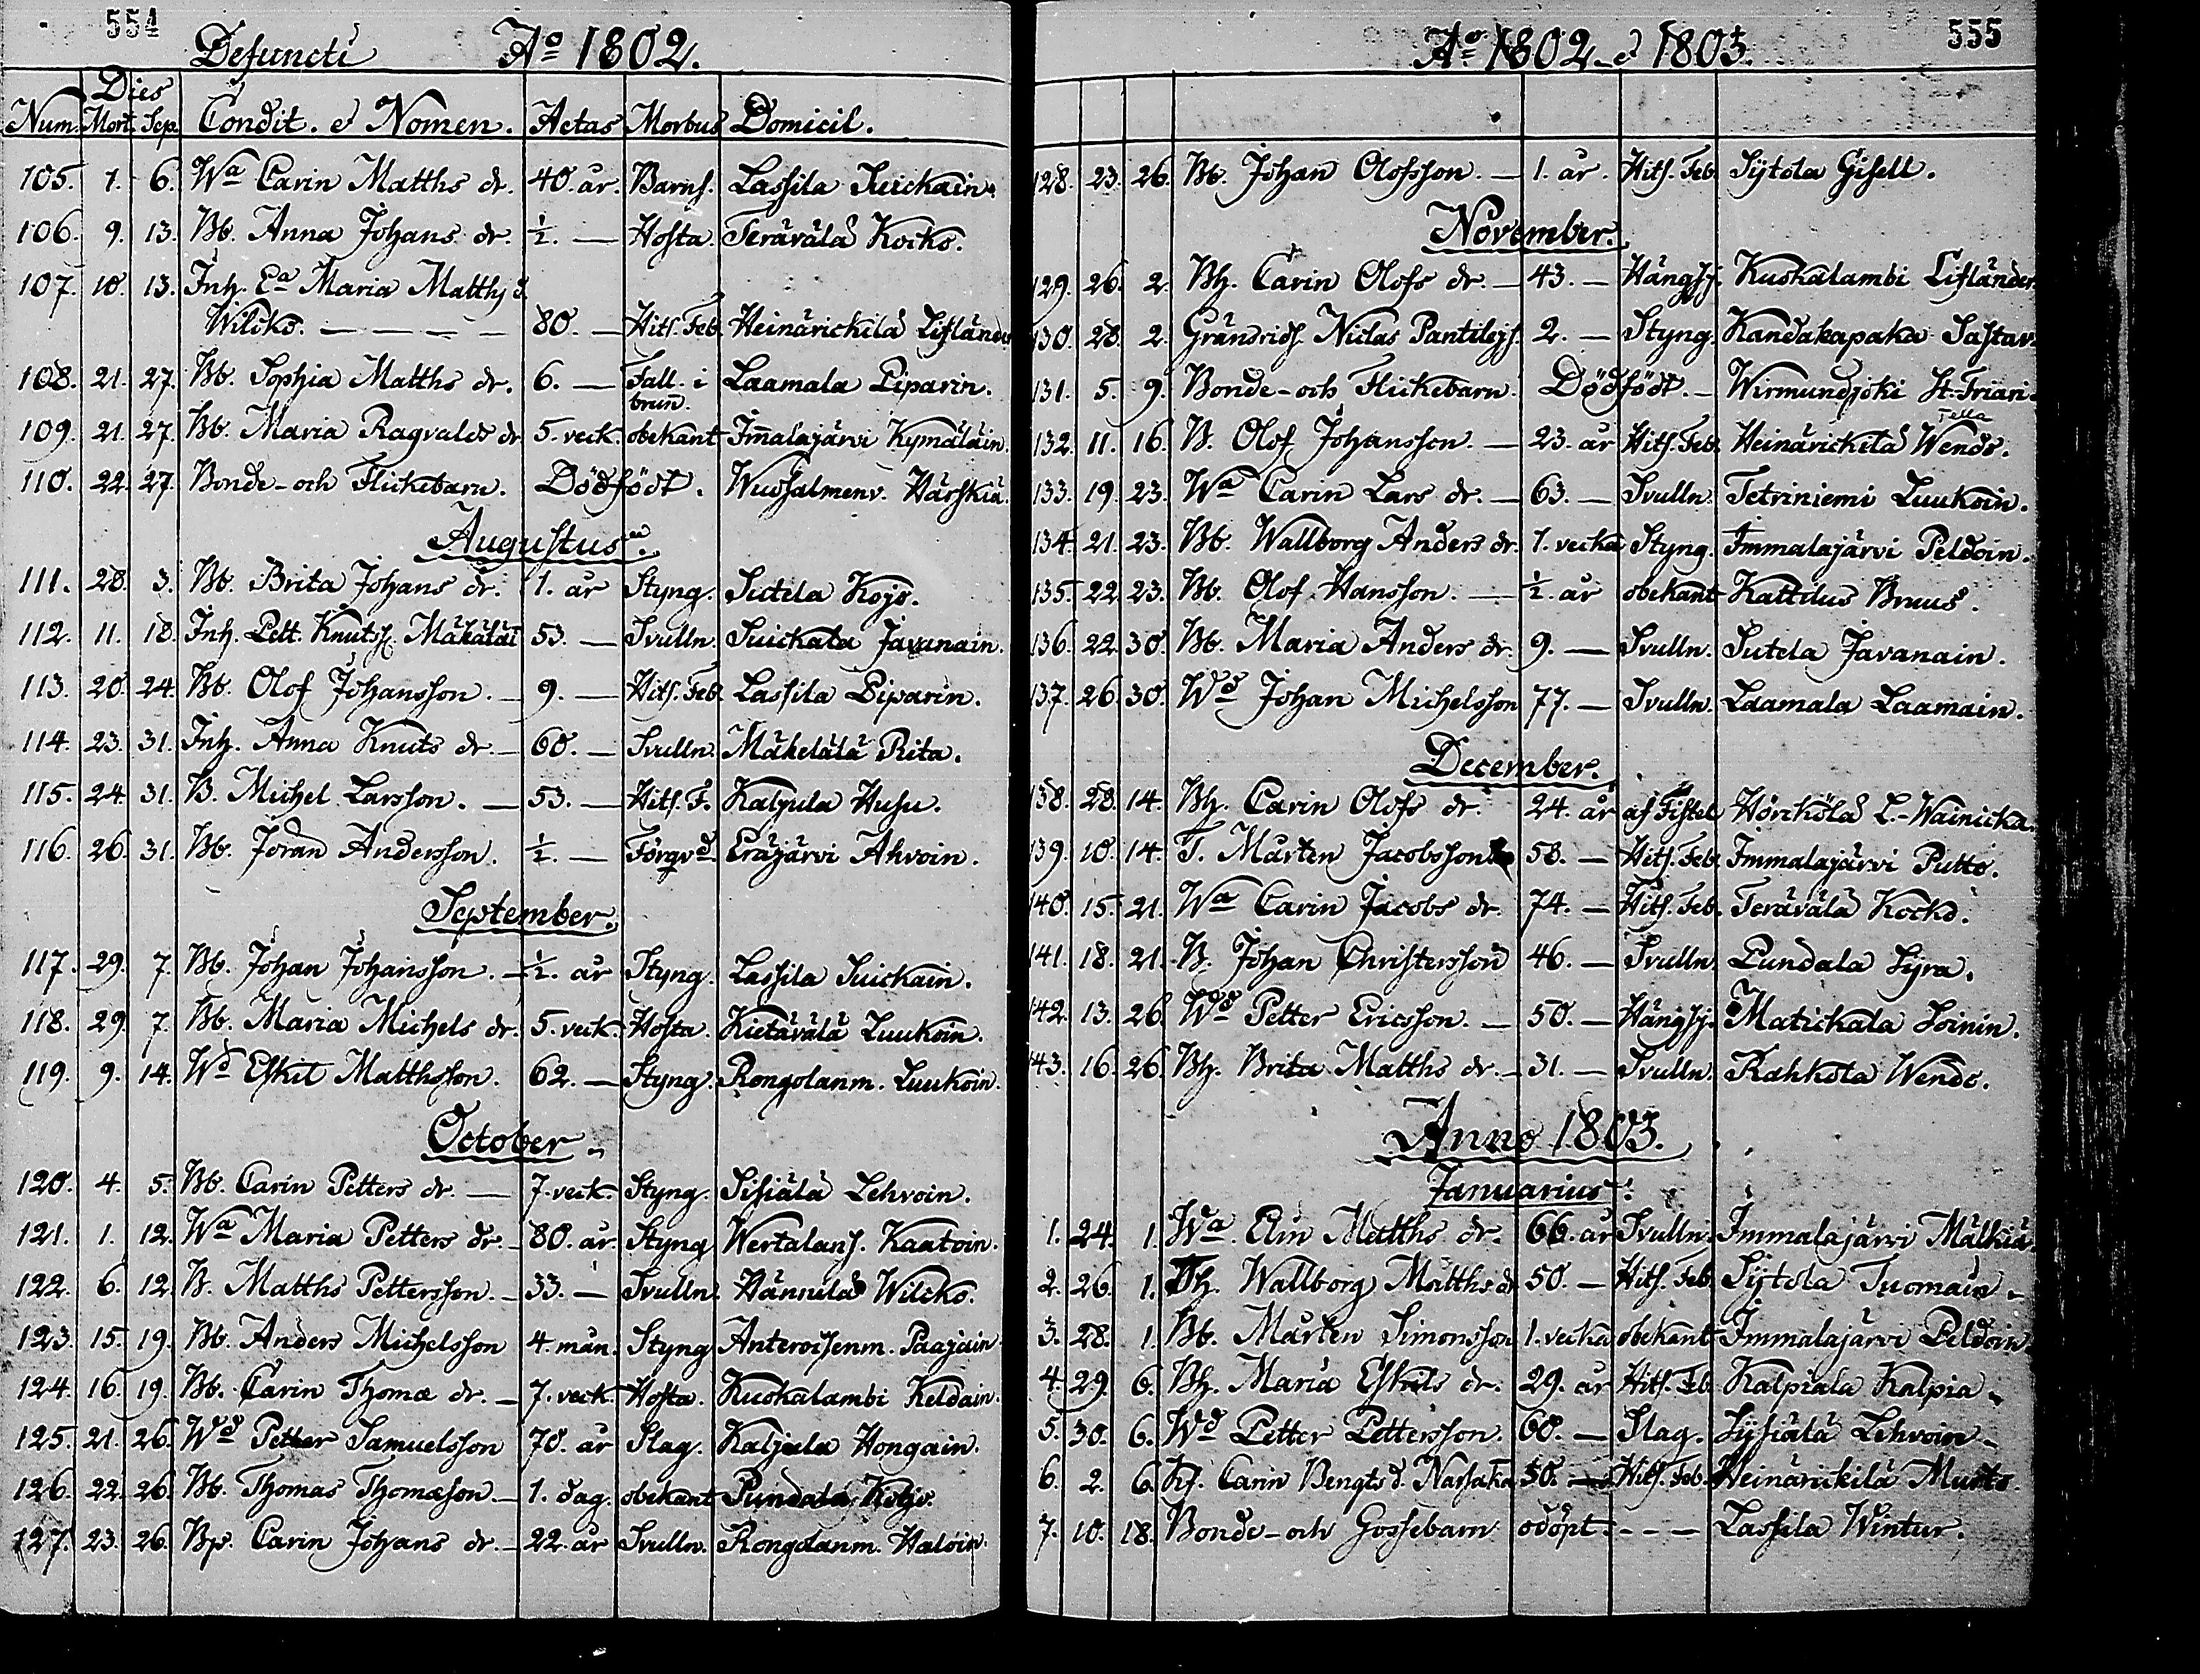 554
Defuncti Ao 1802.
Dies
Num. Mort. Sep. Condit. & Nomen. Aetas Morbus Domicil.
105. 1. 6. Wa Carin Matths dr. 40. år. Barns. Lassila Suickain.
106. 9. 13. Bb. Anna Johans dr. ½. — Hosta. Terävälä Kocko.
107. 10. 13. Inh. Ea Maria Matths d.
Wilcko. — — — — 80. — Hits. Feb. Heinärickilä Lifländer
108. 21. 27. Bb. Sophia Matths dr. 6. — Fall. i brun. Laamala Piparin.
109. 21. 27. Bb. Maria Ragvalds dr 5. veck. obekant Im̄alajärvi Kymäläin.
110. 22. 27. Bonde- och Flickebarn. Dödfödt. Wuosalmenv. Härskiä.
Augustus.
111. 28. 3. Bb. Brita Johans dr. 1. år Styng. Sutela Kojo.
112. 11. 18. Inh. Pett. Knutss. Mäkäläi 53. — Svulln. Suickala Javanain.
113. 20. 24. Bb. Olof Johansson. — 9. — Hits. Feb. Lassila Piparin.
114. 23. 31. Inh. Anna Knuts dr. — 60. — Svulln. Mäkelälä Rita.
115. 24. 31. B. Michel Larsson. — 53. — Hits. F. Kaljula Husu.
116. 26. 31. Bb. Jöran Andersson. ½. — Förqvd. Eräjärvi Ahvoin.
September.
117. 29. 7. Bb. Johan Johansson. — ½. år Styng. Lassila Suickain.
118. 29. 7. Bb. Maria Michels dr. 5. veck. Hosta. Kietävälä Luukoin.
119. 9. 14. Wd Eskil Matthsson. 62. — Styng. Rongolanm. Luukoin.
October.
120. 4. 5. Bb. Carin Petters dr. — 7. veck. Styng. Sisiälä Lehvoin.
121. 1. 12. Wa Maria Petters dr. — 80. år. Styng Wertalans. Kaatoin.
122. 6. 12. B. Matths Pettersson. — 33. — Svulln. Hännilä Wilcko.
123. 15. 19. Bb. Anders Michelsson 4. mån. Styng Anteroisenm. Paajain.
124. 16. 19. Bb. Carin Thomæ dr. — 7. veck. Hosta. Kuokalambi Keldain.
125. 21. 26. Wd Petter Samuelsson 70. år Slag. Kaljula Hongain.
126. 22. 26. Bb. Thomas Thomæson. — 1. dag. obekant Pundala Kojo.
127. 23. 26. Bp. Carin Johans dr. — 22. år Svulln. Rongolanm. Haloin.
Ao 1802. & 1803. 555
128. 23. 26. Bb. Johan Olofsson. — 1. år. Hits. Feb. Sÿtola Gisell.
November.
129. 26. 2. Bh. Carin Olofs dr. — 43. — Hängsj. Kuokalambi Lifländer.
130. 28. 2. Gränrids. Niclas Pantilejs. 2. — Styng. Kandakapaka Sastav.
131. 5. 9. Bonde- och Flickebarn. Dödfödt. — Wirmundjoki St. Friari.
132. 11. 16. B. Olof Johansson. — 23. år Hits. Feb. Heinärickilä Tella Wendo.
133. 19. 23. Wa Carin Lars dr. — 63. — Svulln. Tetriniemi Luukoin.
134. 21. 23. Bb. Wallborg Anders dr. 1. vecka Styng. Immalajärvi Peldoin.
135. 22. 23. Bb. Olof Hansson. — ½. år obekant Kattilus Bruus.
136. 22. 30. Bb. Maria Anders dr. 9. — Svulln. Sutela Javanain.
137. 26. 30. Wd Johan Michelsson 77. — Svulln. Laamala Laamain.
December.
138. 28. 14. Bh. Carin Olofs dr. 24. år af Fistel Hörckölä L.-Wainicka.
139. 10. 14. T. Mårten Jacobsson 58. — Hits. Feb. Immalajärvi Putto.
140. 15. 21. Wa Carin Jacobs dr. 74. — Hits. Feb. Terävälä Kocko.
141. 18. 21. B. Johan Christersson 46. — Svulln. Pundala Syra.
142. 13. 26. Wd Petter Ericsson. — 50. — Hängsj. Matickala Soinin.
143. 16. 26. Bh. Brita Matths dr. — 31. — Svulln. Rahkola Wendo.
Anno 1803.
Januarius.
1. 24. 1. Wa Elin Matths dr. 66. år Svulln. Immalajärvi Mälkiä.
2. 26. 1. Th. Wallborg Matths dr 50. — Hits. Feb. Sÿtola Tuomain.
3. 28. 1. Bb. Mårten Simonsson 1. vecka obekant Immalajärvi Peldoin.
4. 29. 6. Bh. Maria Eskils dr. 29. år Hits. Feb. Kalpiala Kalpia.
5. 30. 6. Wd Petter Pettersson. 60. — Slag. Sÿsiälä Lehvoin.
6. 2. 6. Carin Bengts d. 50. — Hits. Feb. Heinärickilä Musto.
7. 10. 18. Bonde- och Gossebarn odöpt. - - — Lassila Wintur.